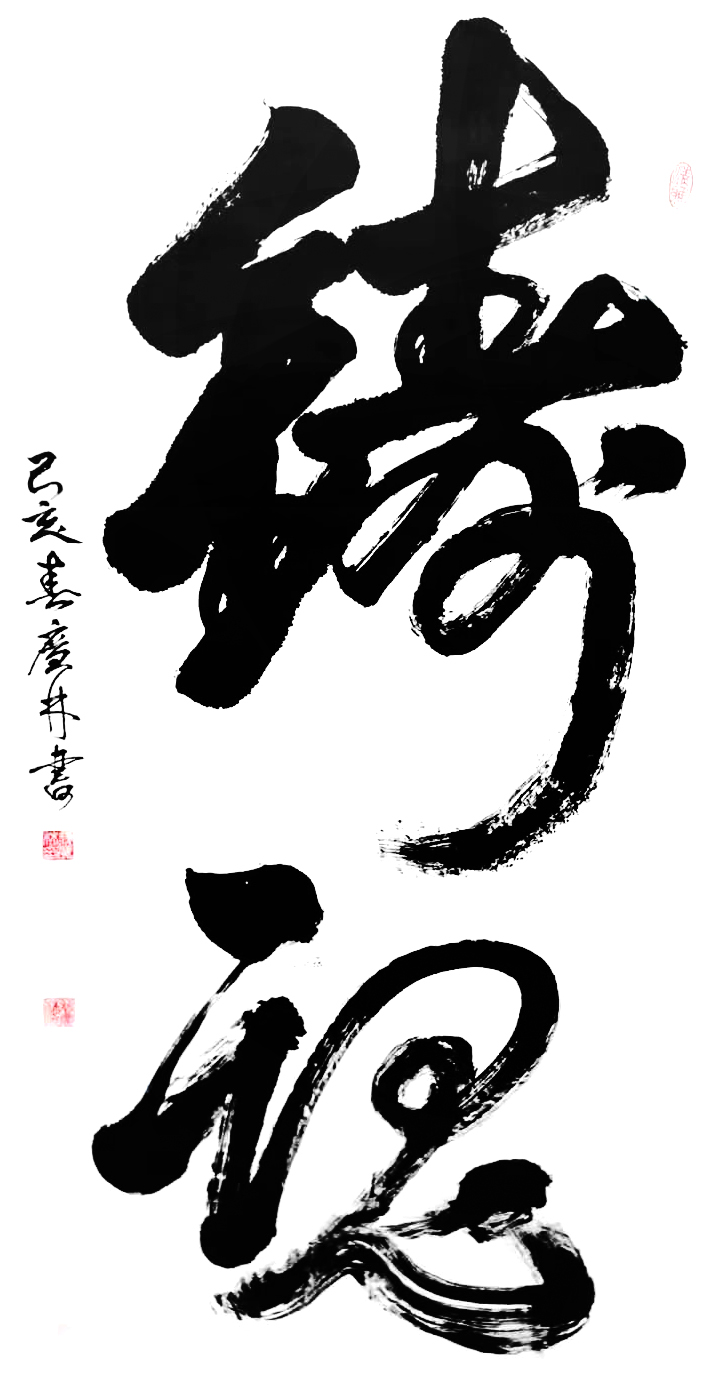 鑄魂
己亥春慶林書